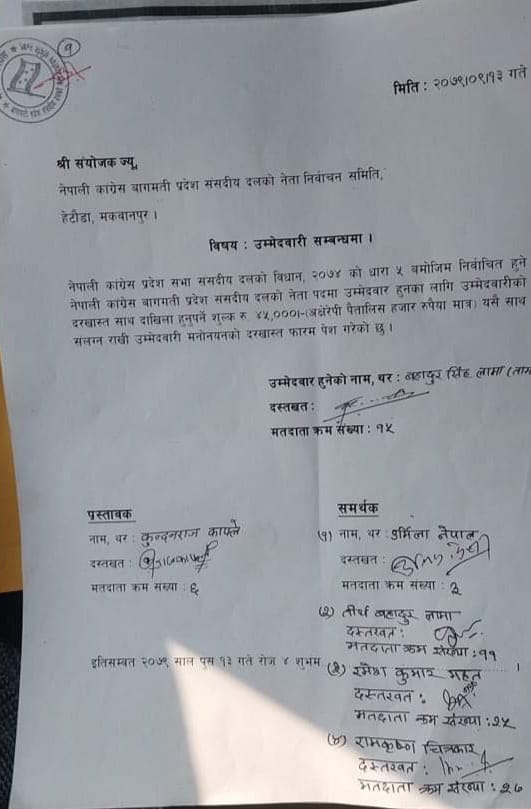 १
मिति : २०७९।०९।१३ गते
श्री संयोजक ज्यू,
नेपाली कांग्रेस बागमती प्रदेश संसदीय दलको नेता निर्वाचन समिति,
हेटौडा, मकवानपुर ।
विषय : उम्मेदवारी सम्बन्धमा ।
नेपाली कांग्रेस प्रदेश सभा संसदीय दलको विधान, २०७४ को धारा ५ बमोजिम निर्वाचित हुने
नेपाली कांग्रेस बागमती प्रदेश संसदीय दलको नेता पदमा उम्मेदवार हुनका लागि उम्मेदवारीको
दरखास्त साथ दाखिला हुनुपर्ने शुल्क रु ४५,०००।-(अक्षरेपी पैतालिस हजार रुपैया मात्र) यसै साथ
संलग्न राखी उम्मेदवारी मनोनयनको दरखास्त फारम पेश गरेको छु ।
उम्मेदवार हुनेको नाम, थर : बहादुर सिंह लामा (ताम
दस्तखत :
मतदाता क्रम संख्या : १५
प्रस्तावक
नाम, थर : कुन्दनराज काफ्ले
दस्तखत :
मतदाता क्रम संख्या : ६
समर्थक
(१) नाम, थर : उर्मिला नेपाल
दस्तखत :
मतदाता क्रम संख्या : ३
(२) तीर्थ बहादुर लामा
दस्तखत :
मतदाता क्रम संख्या : ११
इतिसम्वत २०७९ साल पुस १३ गते रोज ४ शुभम
(३) रमेश कुमार महत
दस्तखत :
मतदाता क्रम संख्या : २५
(४) रामकृष्ण चित्रकार
दस्तखत :
मतदाता क्रम संख्या : २७